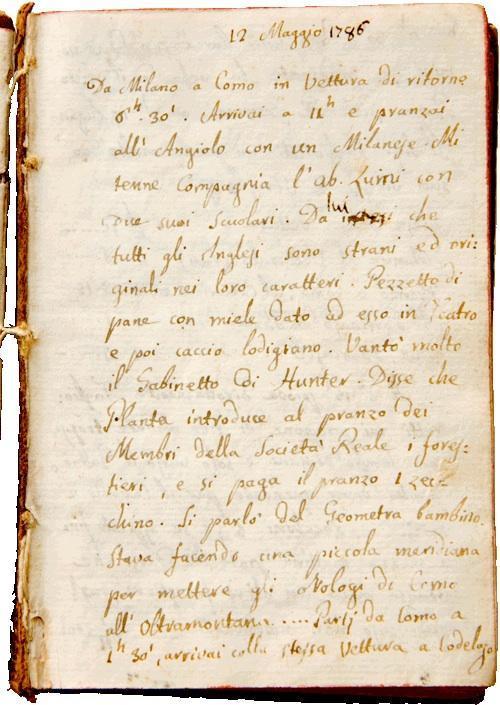 12 Maggio 1786
Da Milano a Como in Vettura di ritorno
6h. 30'. Arrivai a 11h e pranzai
all' Angiolo con un Milanese. Mi
tenne Compagnia l'ab. Luini con
due suoi Scuolari. Da lui che
tutti gli Inglesi sono strani ed ori:
ginali nei loro caratteri. Pezzetto di
pane con miele dato ad esso in Teatro
e poi caccio lodigiano. Vantò molto
il Gabinetto di Hunter. Disse che
Planta introduce al pranzo dei
Membri della Società Reale i fores:
tieri, e si paga il pranzo 1 zec:
chino. Si parlò del Geometra bambino.
Stava facendo una piccola meridiana
per mettere gli orologi di Como
all' Oltramontana..... Partj da Como a
1h 30', arrivai colla stessa Vettura a